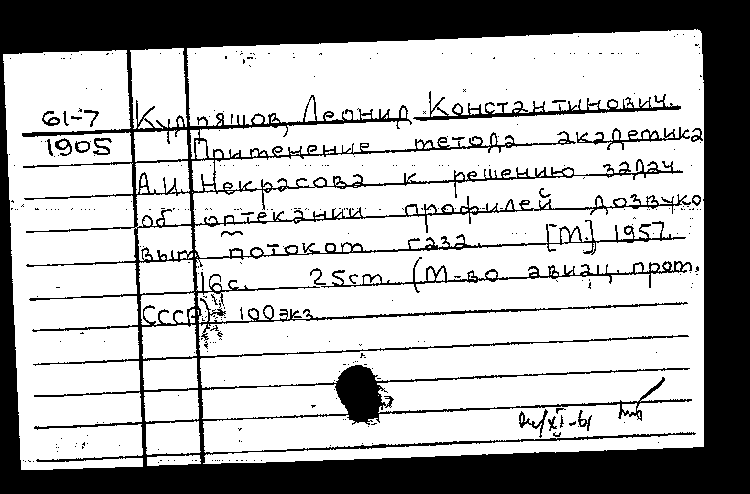 61-7 Кудряшов, Леонид Константинович.
1905 Применение метода академика
А.И. Некрасова к решению задач
об оптекании профилей дозвуко
вым потоком газа. [М.] 1957.
16 с. 25 см. (М-во авиац. пром.
СССР) 100 экз